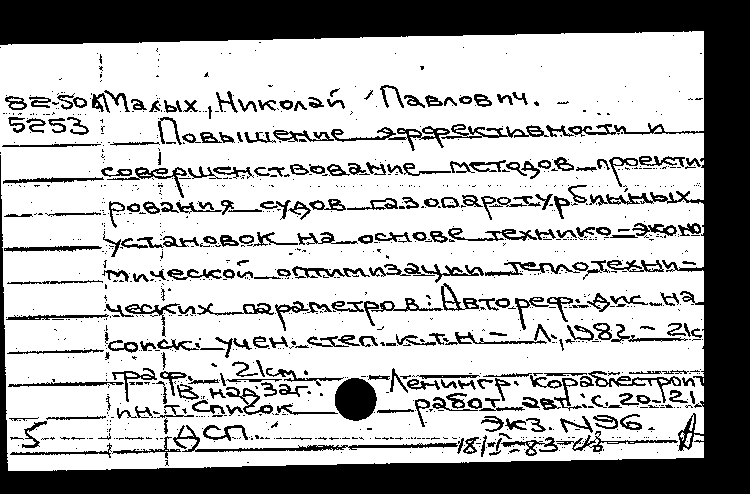 8Е-50А Малых, Николай Павлович.
5253 Повышение эффективности и
совершенствование методов проекти-
рования судов газопаротурбинных
установок на основе технико-эконо
мической оптимизации теплотехни-
ческих параметров: Автореф. дис на
соиск. учен. степ. к.т.н. - Л., 1982. - 21с
граф.; 21см.
В надзаг.: Ленингр. кораблестроит
ин.-т. Список работ авт.: с. 20-21.
5 ДСП. Экз. №96.
18/I-83